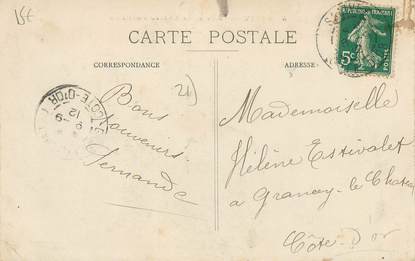 15€
CARTE POSTALE
CORRESPONDANCE
ADRESSE
5c
POSTES
21
CÔTE-D'OR
9
12
Bons
souvenirs.
Fernande
Mademoiselle
Hélène Estivalet
à Grancey le Chateau
Côte-d'or